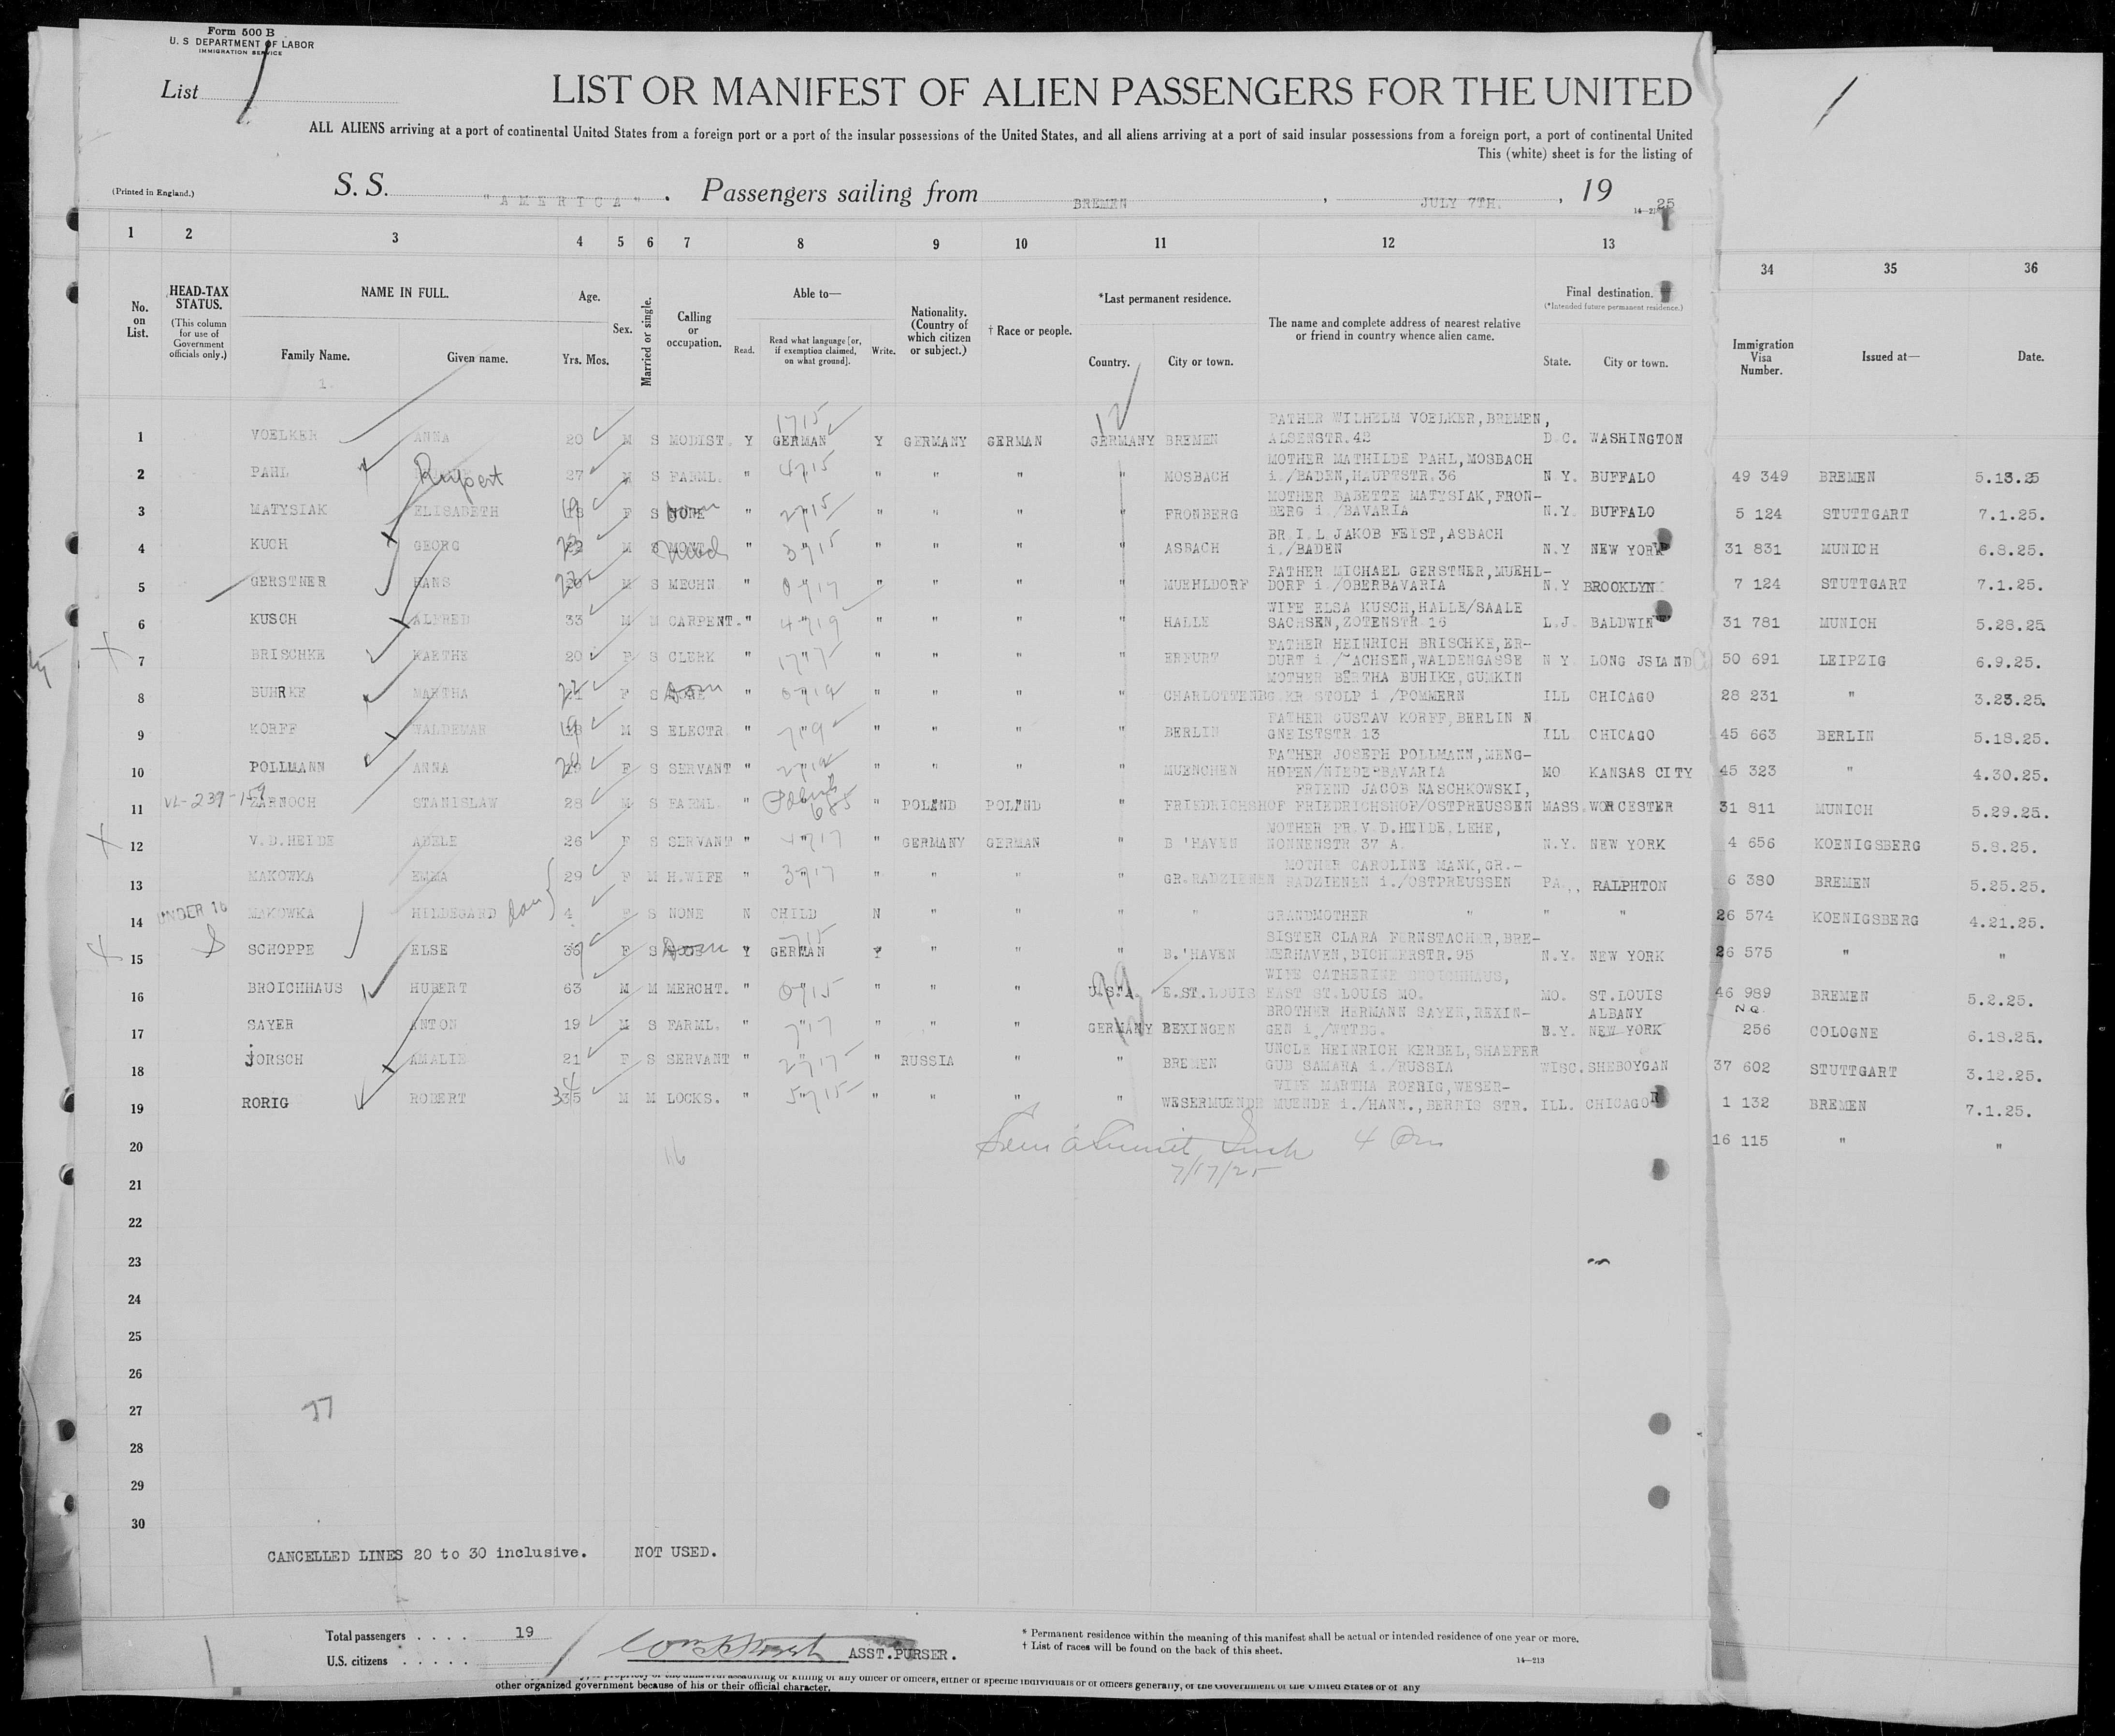 Form 500 B
U. S DEPARTMENT OF LABOR
IMMIGRATION SERVICE
List 1
LIST OR MANIFEST OF ALIEN PASSENGERS FOR THE UNITED
ALL ALIENS arriving at a port of continental United States from a foreign port or a port of the insular possessions of the United States, and all aliens arriving at a port of said insular possessions from a foreign port, a port of continental United
This (white) sheet is for the listing of
(Printed in England.)
S. S. "AMERICA". Passengers sailing from BREMEN, JULY 7TH., 19 25
1 2 3 4 5 6 7 8 9 10 11 12 13 34 35 36
No. on List.
HEAD-TAX STATUS.
(This column for use of Government officials only.)
NAME IN FULL.
Family Name. Given name.
Age.
Yrs. Mos.
Sex.
Married or single.
Calling or occupation.
Able to—
Read. Read what language [or, if exemption claimed, on what ground]. Write.
Nationality. (Country of which citizen or subject.)
† Race or people.
*Last permanent residence.
Country. City or town.
The name and complete address of nearest relative or friend in country whence alien came.
Final destination.
(*Intended future permanent residence.)
State. City or town.
Immigration Visa Number. Issued at— Date.
1 VOELKER ANNA 20 M S MODIST. Y GERMAN Y GERMANY GERMAN GERMANY BREMEN FATHER WILHELM VOELKER, BREMEN, ALSENSTR.42 D.C. WASHINGTON
2 PAHL Rupert 27 M S FARML. " " " " " " MOSBACH MOTHER MATHILDE PAHL, MOSBACH i./BADEN, HAUPTSTR.36 N Y. BUFFALO 49 349 BREMEN 5.13.25
3 MATYSIAK ELISABETH F S " " " " " " FRONBERG MOTHER BABETTE MATYSIAK, FRON-BERG i./BAVARIA N.Y. BUFFALO 5 124 STUTTGART 7.1.25.
4 KUCH GEORG M S " " " " " " ASBACH BR.I.L JAKOB FEIST, ASBACH i./BADEN N.Y NEW YORK 31 831 MUNICH 6.8.25.
5 GERSTNER HANS M S MECHN " " " " " " MUEHLDORF FATHER MICHAEL GERSTNER, MUEHL-DORF i./OBERBAVARIA N.Y BROOKLYN 7 124 STUTTGART 7.1.25.
6 KUSCH ALFRED 33 M M CARPENT. " " " " " " HALLE WIFE ELSA KUSCH, HALLE/SAALE SACHSEN, ZOTENSTR 16 L.J. BALDWIN 31 781 MUNICH 5.28.25
7 BRISCHKE KAETHE 20 F S CLERK " " " " " " ERFURT FATHER HEINRICH BRISCHKE, ER-DURT i./SACHSEN, WALDENGASSE N Y LONG JSLAND 50 691 LEIPZIG 6.9.25.
8 BUHRKE MARTHA F S Dom " " " " " " CHARLOTTENBG. MOTHER BERTHA BUHIKE, GUMKIN KR STOLP i /POMMERN ILL CHICAGO 28 231 " 3.23.25.
9 KORFF WALDEMAR M S ELECTR. " " " " " " BERLIN FATHER GUSTAV KORFF, BERLIN N GNEISTSTR 13 ILL CHICAGO 45 663 BERLIN 5.18.25.
10 POLLMANN ANNA F S SERVANT " " " " " " MUENCHEN FATHER JOSEPH POLLMANN, MENG-HOFEN/NIEDERBAVARIA MO KANSAS CITY 45 323 " 4.30.25.
11 ZARNOCH STANISLAW 28 M S FARML. " Polish " POLAND POLAND " FRIEDRICHSHOF FRIEND JACOB NASCHKOWSKI, FRIEDRICHSHOF/OSTPREUSSEN MASS. WORCESTER 31 811 MUNICH 5.29.25.
12 V.D.HEIDE ADELE 26 F S SERVANT " " " GERMANY GERMAN " B'HAVEN MOTHER FR.V.D.HEIDE, LEHE, NONNENSTR 37 A. N.Y. NEW YORK 4 656 KOENIGSBERG 5.8.25.
13 MAKOWKA EMMA 29 F M H.WIFE " " " " " " GR.RADZIENEN MOTHER CAROLINE MANK, GR.-RADZIENEN i./OSTPREUSSEN PA., RALPHTON 6 380 BREMEN 5.25.25.
14 UNDER 16 MAKOWKA HILDEGARD dau 4 F S NONE N CHILD N " " " " GRANDMOTHER " " " 26 574 KOENIGSBERG 4.21.25.
15 SCHOPPE ELSE F S Dom Y GERMAN Y " " " B.'HAVEN SISTER CLARA FERNSTACHER, BRE-MERHAVEN, STR.95 N.Y. NEW YORK 26 575 " "
16 BROICHHAUS HUBERT 63 M M MERCHT. " " " " " U.S.A. E.ST.LOUIS WIFE CATHERINE BROICHHAUS, EAST ST.LOUIS MO. MO. ST.LOUIS 46 989 BREMEN 5.2.25.
17 SAYER ANTON 19 M S FARML. " " " " " GERMANY BEXINGEN BROTHER HERMANN SAYER, REXIN-GEN i./WTTBG. N.Y. ALBANY NEW YORK N.Q. 256 COLOGNE 6.18.25.
18 JORSCH AMALIE 21 F S SERVANT " " " RUSSIA " " BREMEN UNCLE HEINRICH KERBEL, SHAEFER GUB SAMARA i./RUSSIA WISC. SHEBOYGAN 37 602 STUTTGART 3.12.25.
19 RORIG ROBERT 35 M M LOCKS. " " " " " " WESERMUENDE WIFE MARTHA ROEBIG, WESER-MUENDE i./HANN., STR. ILL. CHICAGO 1 132 BREMEN 7.1.25.
20 16 115 " "
7/17/25
21
22
23
24
25
26
27
28
29
30
CANCELLED LINES 20 to 30 inclusive. NOT USED.
Total passengers . . . . 19
U.S. citizens . . . . .
ASST.PURSER.
* Permanent residence within the meaning of this manifest shall be actual or intended residence of one year or more.
† List of races will be found on the back of this sheet.
14—213
other organized government because of his or their official character.